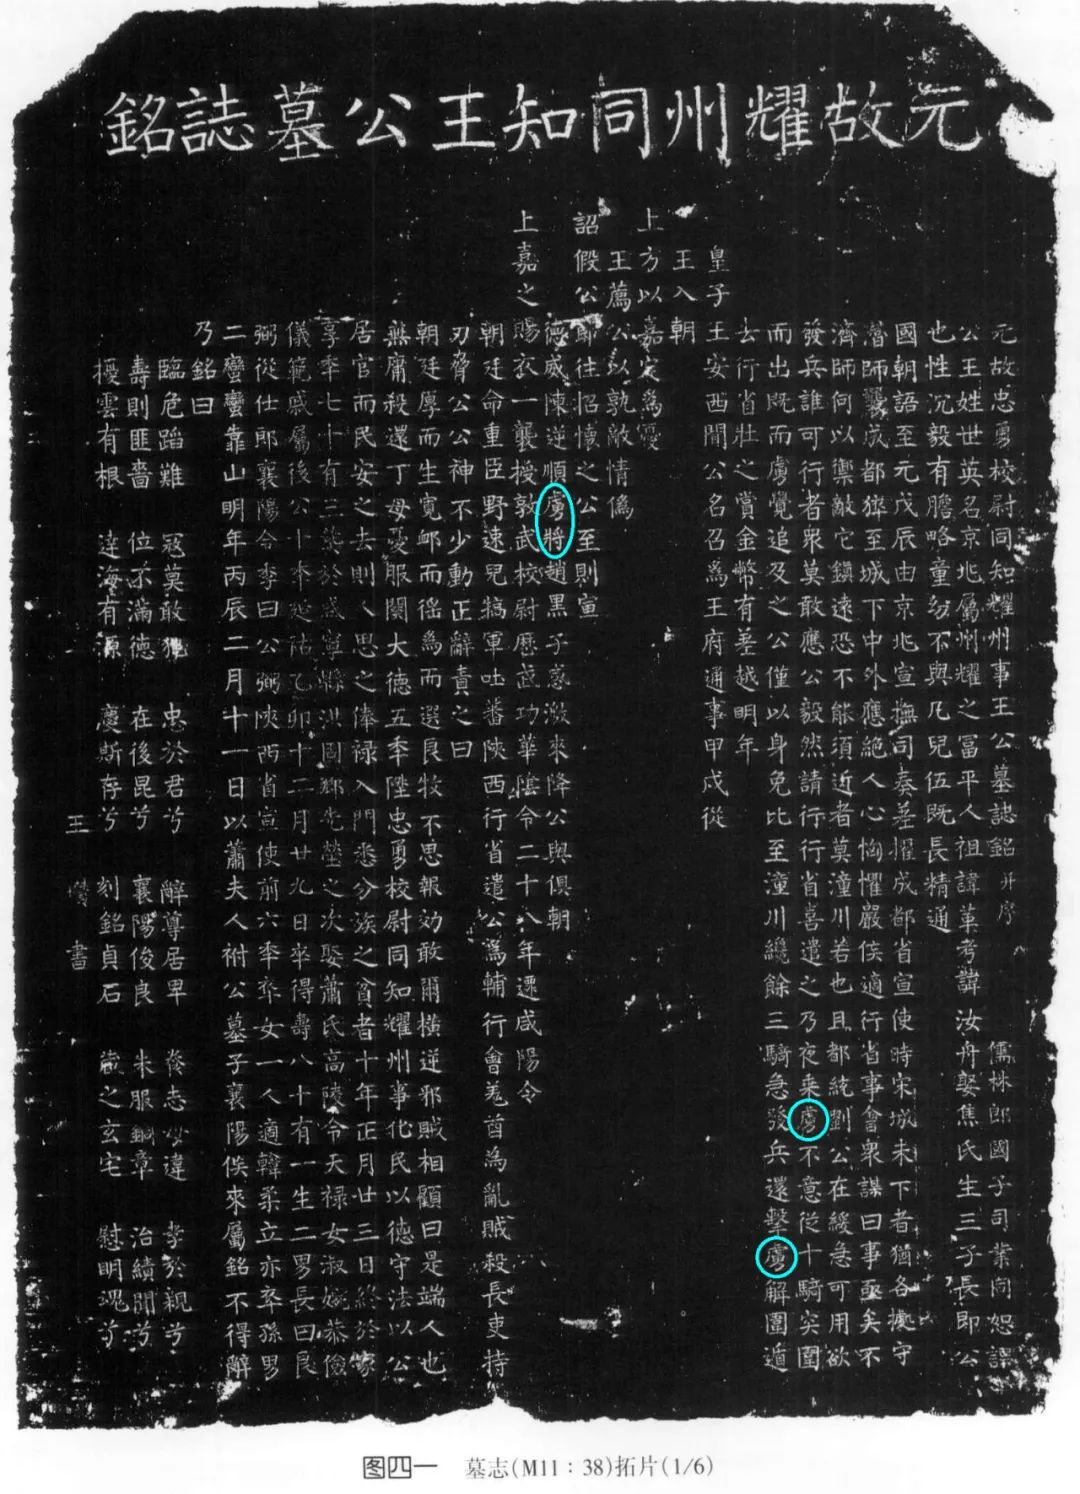 元故耀州同知王公墓誌銘
元故忠勇校尉同知耀州事王公墓誌銘 并序 儒林郎國子司業同恕譔
公王姓世英名京兆屬州耀之冨平人祖諱革考諱汝舟娶焦氏生三子長即公
也性沉毅有膽略童幼不與凡兒伍既長精通
國朝語至元戊辰由京兆宣撫司奏差擢成都省宣使時宋城未下者猶各據守
嘗師襲成都猝至城下中外應絶人心恟懼嚴侯適行省事會衆謀曰事亟矣不
濟師何以禦敵它鎮遠恐不能須近者莫潼川若也且都統劉公在緩急可用欲
發兵誰可行者衆莫敢應公毅然請行行省喜遣之乃夜乘虜不意從十騎突圍
而出既而虜覺追及之公僅以身免比至潼川纔餘三騎急發兵還擊虜解圍遁
去行省壯之賞金幣有差越明年
皇子王安西聞公名召為王府通事甲戌從
王入朝
上方以嘉定為憂
王薦公以孰敵情偽
詔假公即往招懷之公至則宣
德威陳逆順虜將趙黑子感激來降公與俱朝
上嘉之賜衣一襲授敦武校尉歷武功華陰令二十八年遷咸陽令
朝廷命重臣野速兒犒軍吐蕃陝西行省遣公為輔行會羗酋為亂賊殺長吏持
刃脅公公神不少動正辭責之曰
朝廷厚而生寬邮而徭為而選良牧不思報効敢爾橫逆邪賊相顧曰是端人也
無庸殺還丁母憂服闋大德五年陞忠勇校尉同知耀州事化民以德守法以公
居官而民安之去則人思之俸祿入門悉分族之貧者十年正月廿三日終於家
享年七十有三塟於咸寧縣洪固鄉先塋之次娶蕭氏高陵令天祿女淑婉恭儉
儀範戚屬後公十年延祐乙卯十二月廿九日卒得壽八十有一生二男長曰良
弼從仕郎襄陽令季曰公弼陝西省宣使前六年卒女一人適韓柔立亦卒孫男
二蠻蠻靠山明年丙辰二月十一日以蕭夫人祔公墓子襄陽俟來屬銘不得辭
乃銘曰
臨危蹈難 冦莫敢犯 忠於君兮 辭尊居卑 養志弗違 孝於親兮
壽則匪嗇 位不滿德 在後昆兮 襄陽俊良 朱服銅章 治績聞兮
擾雲有根 達海有源 慶斯存兮 刻銘貞石 識之玄宅 慰明魂兮
王 書
图四一 墓志(M11：38)拓片(1/6)